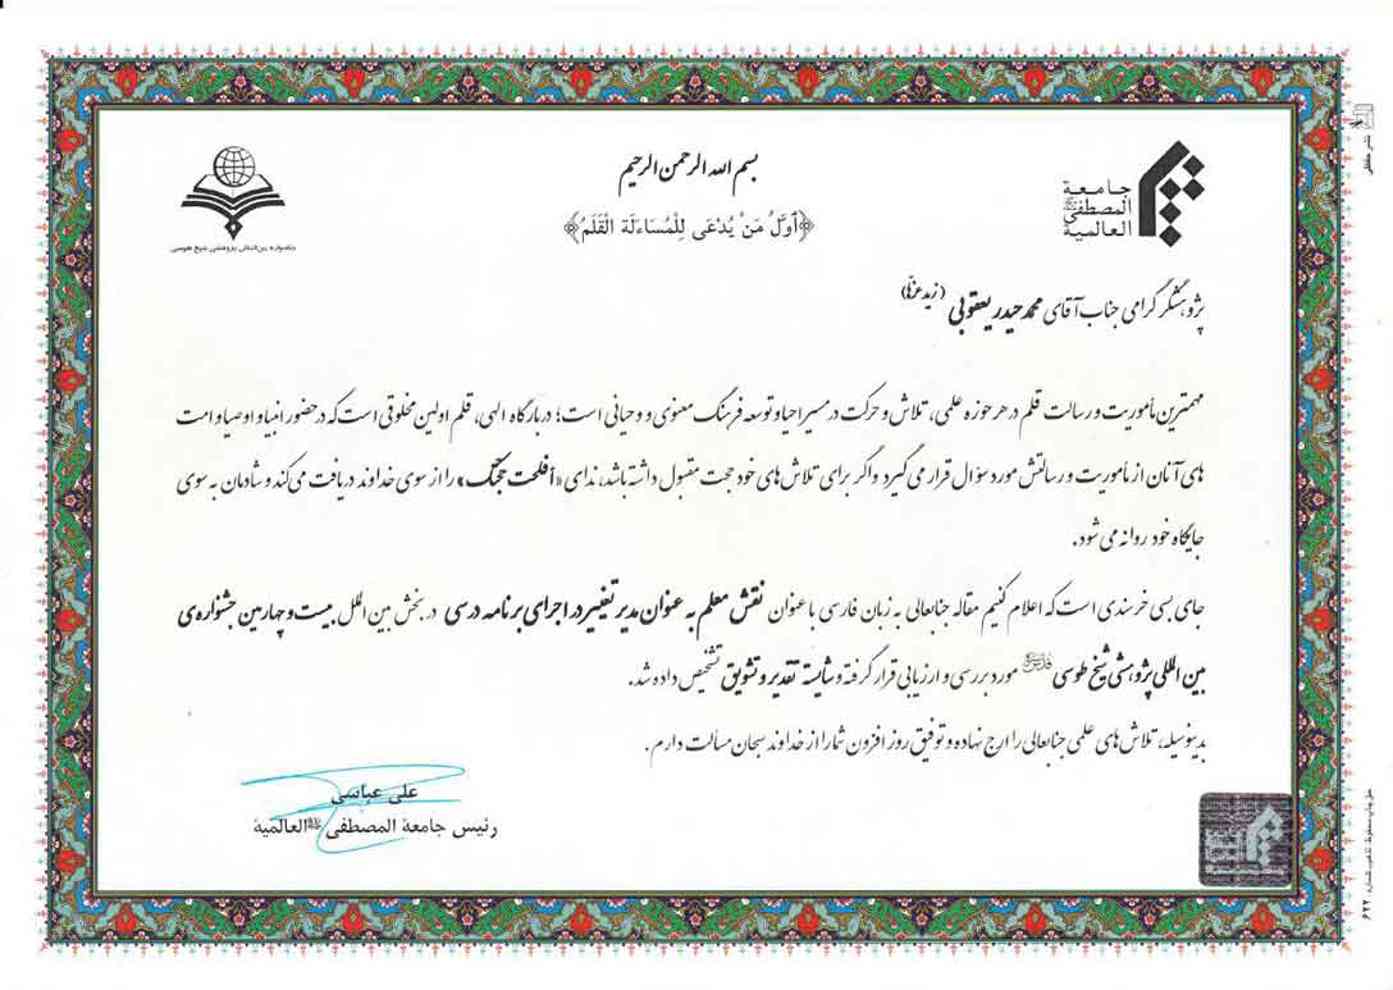 بسم الله الرحمن الرحیم
﴿أَوَّلُ مَنْ یُدْعَی لِلْمُسَاءَلَة الْقَلَمُ﴾
جامعة
المصطفی
العالمیة
جشنواره بین‌المللی پژوهشی شیخ طوسی
پژوهشگر گرامی جناب آقای محمد حیدر یعقوبی (زید عزّه)
مهمترین مأموریت و رسالت قلم در هر حوزه علمی، تلاش و حرکت در مسیر احیا و توسعه فرهنگ معنوی و وحیانی است؛ در بارگاه الهی، قلم اولین مخلوقی است که در حضور انبیا و اوصیا و امت
های آنان از مأموریت و رسالتش مورد سؤال قرار می گیرد و اگر برای تلاش های خود حجت مقبول داشته باشد، ندای «أفلحت حجتک» را از سوی خداوند دریافت می کند و شادمان به سوی
جایگاه خود روانه می شود.
جای بسی خرسندی است که اعلام کنیم مقاله جنابعالی به زبان فارسی با عنوان نقش معلم به عنوان مدیر تغییر در اجرای برنامه درسی در بخش بین الملل بیست و چهارمین جشنواره‌ی
بین المللی پژوهشی شیخ طوسی مورد بررسی و ارزیابی قرار گرفته و شایسته تقدیر و تشویق تشخیص داده شد.
بدینوسیله، تلاش های علمی جنابعالی را ارج نهاده و توفیق روز افزون شما را از خداوند سبحان مسألت دارم.
علی عباسی
رئیس جامعة المصطفی العالمیة